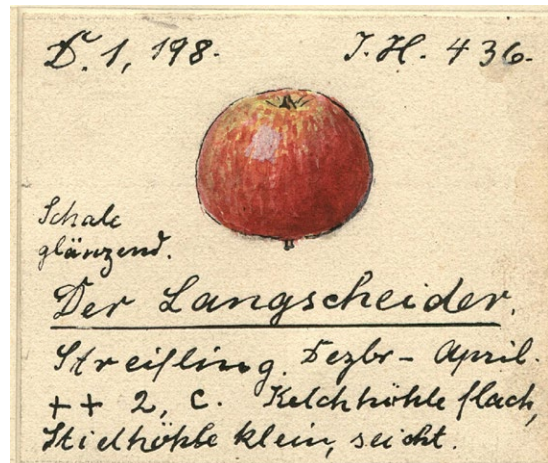 Dr. 1, 198.
J. H. 436.
Schale
glänzend.
Der Langscheider.
Streifling. Dezbr - April.
++ 2, C. Kelchhöhle flach,
Stielhöhle klein, seicht.